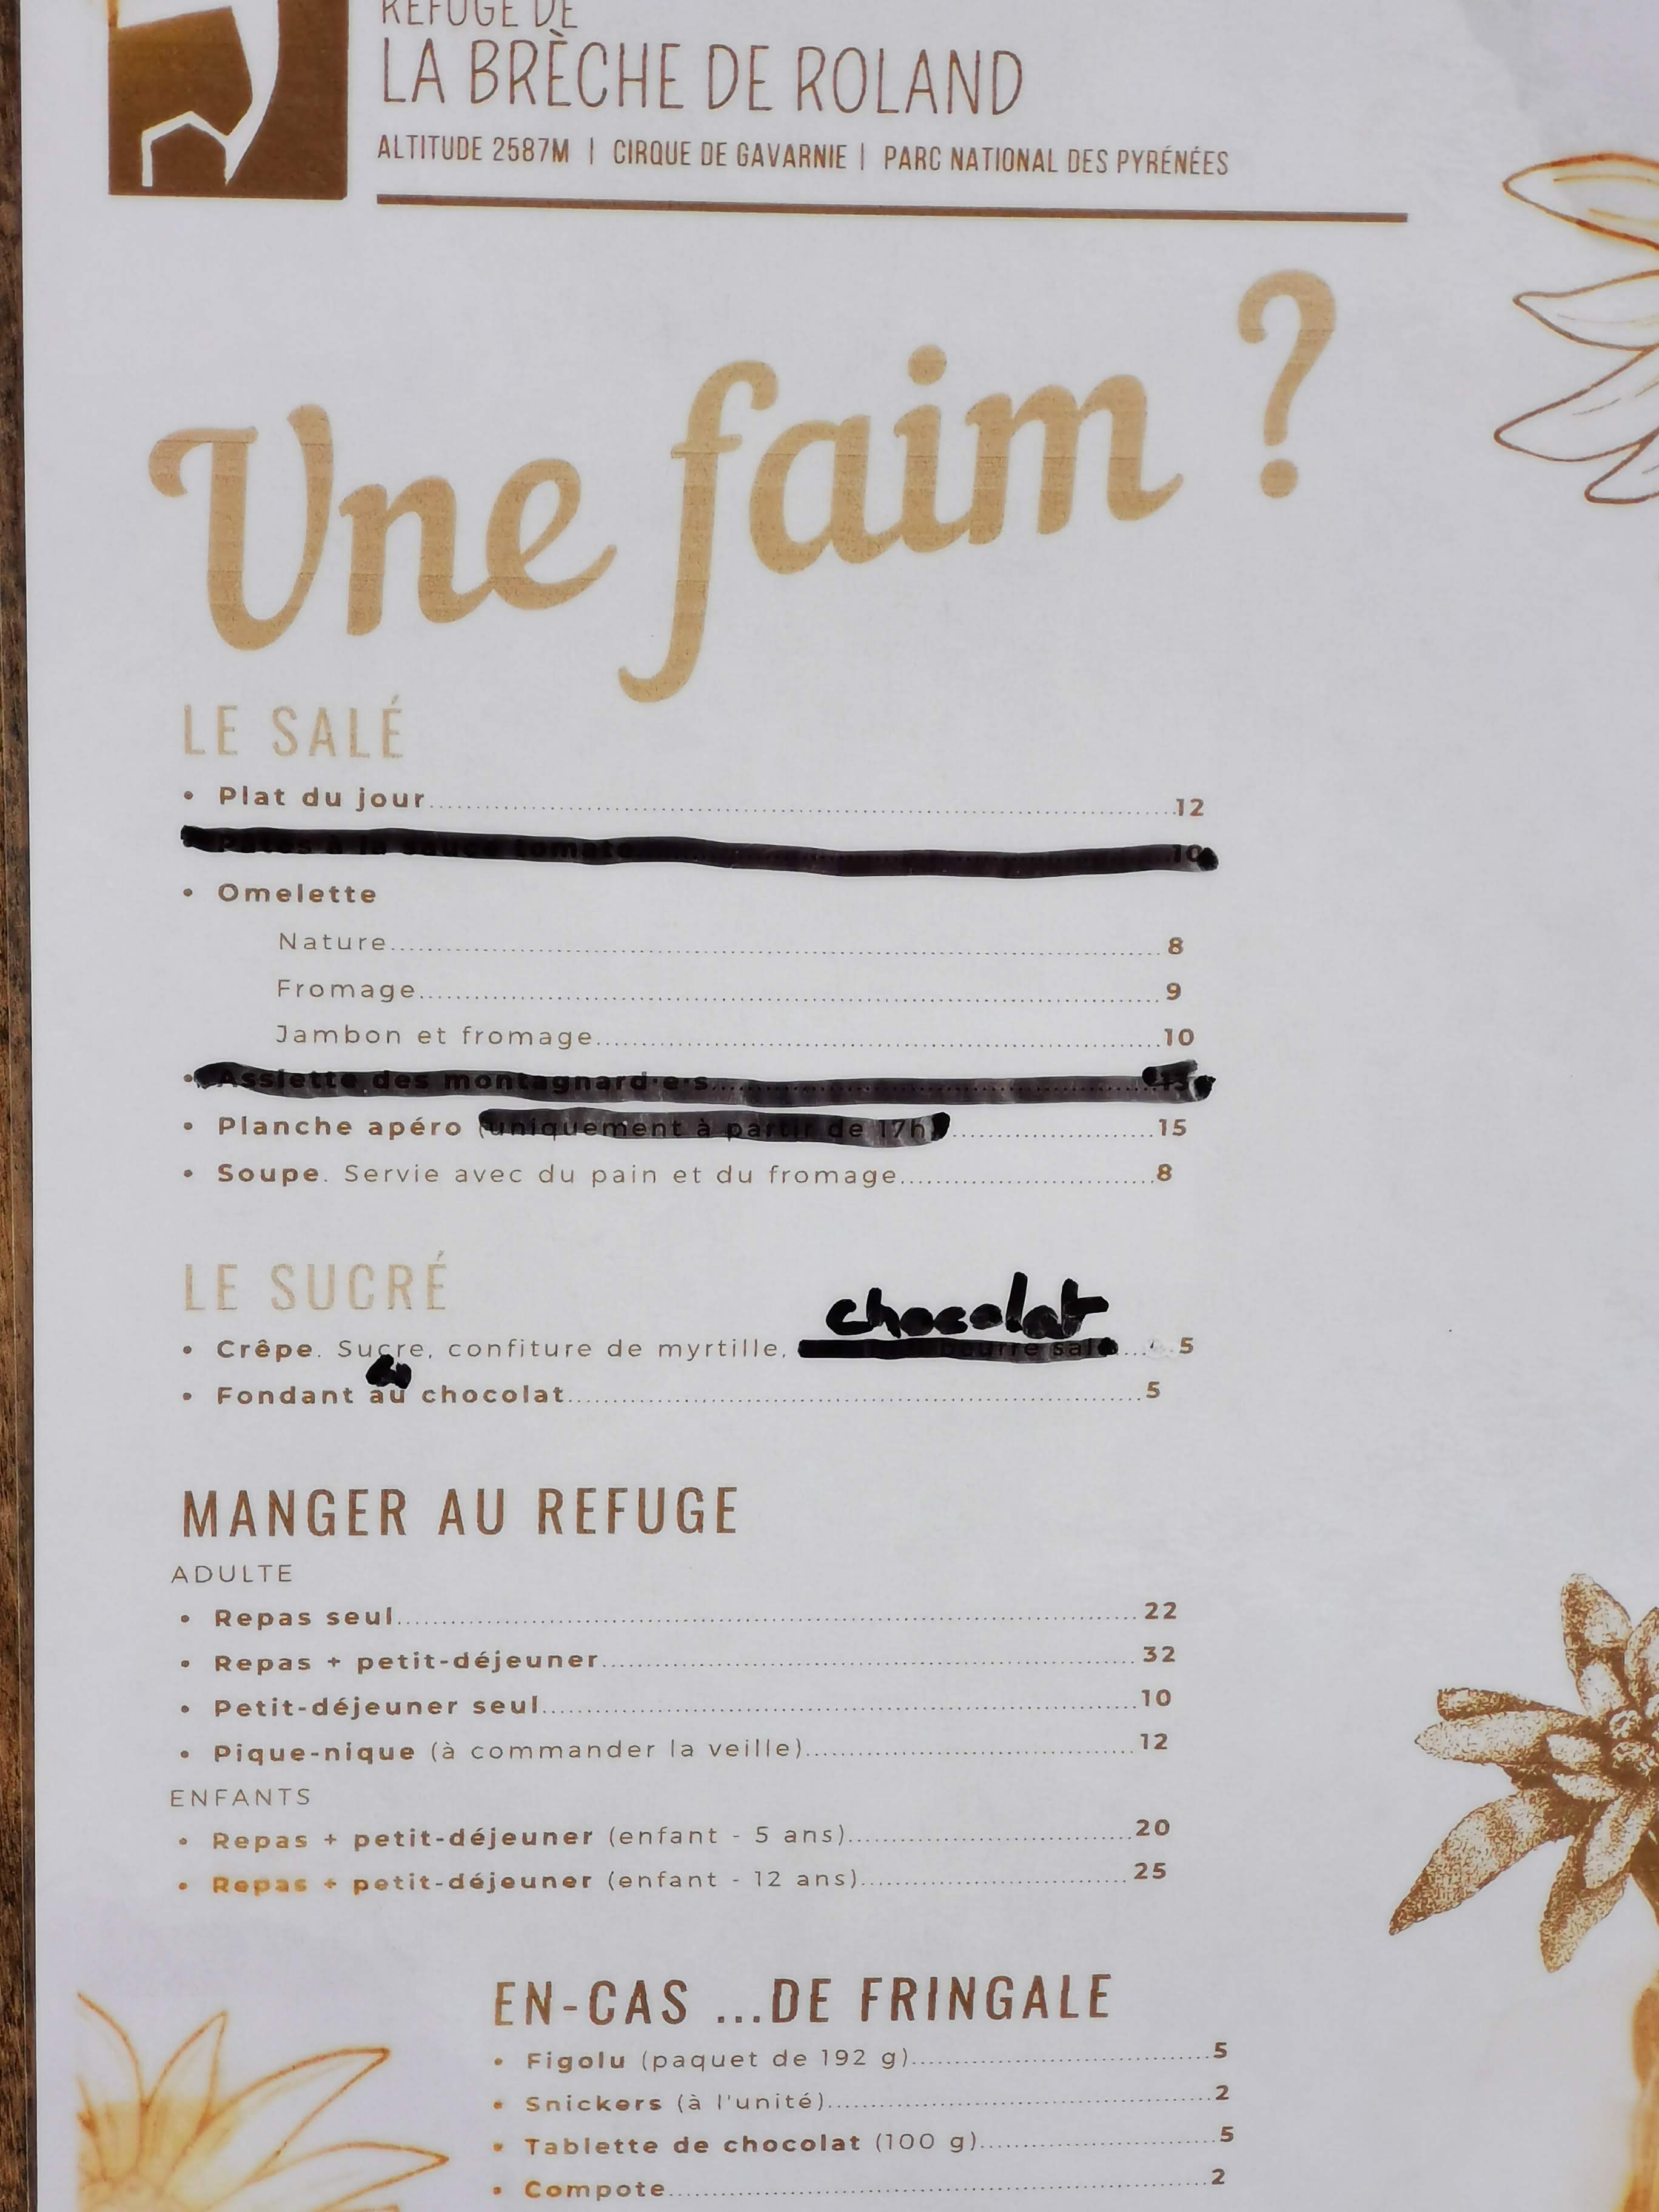 REFUGE DE
LA BRÈCHE DE ROLAND
ALTITUDE 2587M | CIRQUE DE GAVARNIE | PARC NATIONAL DES PYRÉNÉES
Une faim ?
LE SALÉ
• Plat du jour 12
• Pâtes à la sauce tomate 10
• Omelette
Nature 8
Fromage 9
Jambon et fromage 10
• Assiette des montagnard·e·s 13
• Planche apéro (uniquement à partir de 17h) 15
• Soupe. Servie avec du pain et du fromage 8
LE SUCRÉ
chocolat
• Crêpe. Sucre, confiture de myrtille, beurre salé 5
• Fondant au chocolat 5
MANGER AU REFUGE
ADULTE
• Repas seul 22
• Repas + petit-déjeuner 32
• Petit-déjeuner seul 10
• Pique-nique (à commander la veille) 12
ENFANTS
• Repas + petit-déjeuner (enfant - 5 ans) 20
• Repas + petit-déjeuner (enfant - 12 ans) 25
EN-CAS ...DE FRINGALE
• Figolu (paquet de 192 g) 5
• Snickers (à l'unité) 2
• Tablette de chocolat (100 g) 5
• Compote 2